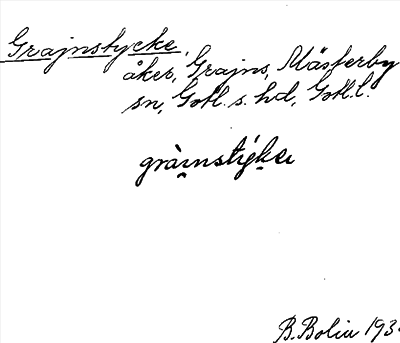 Grajnstycke,
åker, Grajns, Mästerby
sn, Gotl. s. hd, Gotl. l.
gràinstýke
B. Bolin